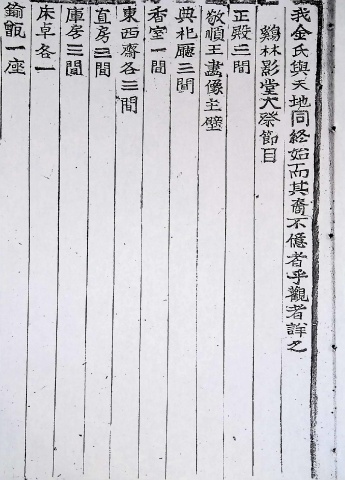 我金氏與天地同終始而其裔不億者乎觀者詳之
鷄林影堂大祭節目
正殿三間
敬順王畫像主壁
典祀廳三間
香室一間
東西齋各三間
直房三間
庫房三間
床卓各一
鍮甑一座